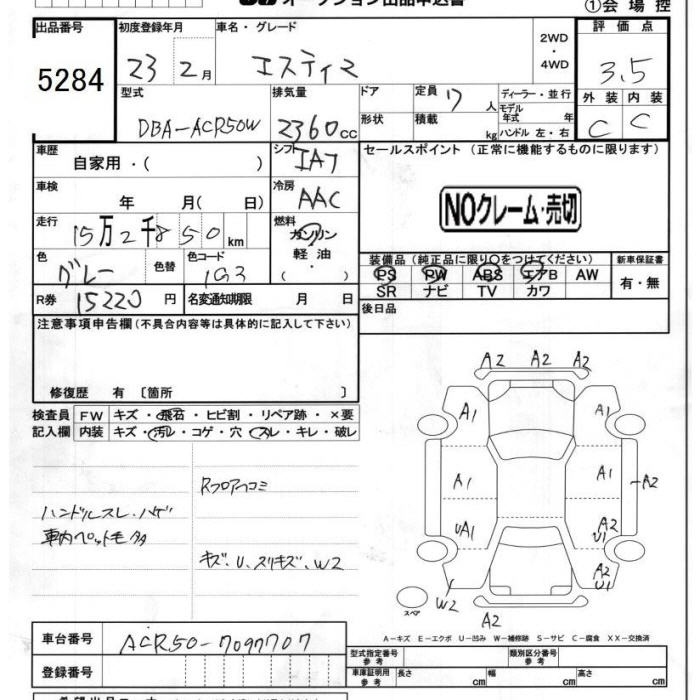 オークション出品申込書
①会場控
出品番号 5284
初度登録年月 23 2月
車名・グレード エスティマ
2WD・4WD
評価点 3.5
外装 C 内装 C
型式 DBA-ACR50W
排気量 2360cc
ドア 形状
定員 7人
積載 kg
ディーラー・並行
モデル年式 年
ハンドル 左・右
車歴 自家用・( )
シフト IA7
セールスポイント (正常に機能するものに限ります)
NOクレーム・売切
車検 年 月(日)
冷房 AAC
走行 15万2千850km
燃料 ガソリン 軽油・( )
色 グレー 色替
色コード 1G3
装備品 (純正品に限り○をつけてください)
PS PW ABS エアB AW
SR ナビ TV カワ
新車保証書 有・無
R券 15220円
名変通知期限 月 日
後日品
注意事項申告欄(不具合内容等は具体的に記入して下さい)
修復歴 有 〔箇所 〕
検査員記入欄
FW キズ・飛石・ヒビ割・リペア跡・×要
内装 キズ・汚レ・コゲ・穴・スレ・キレ・破レ
Rフロアコミ
ハンドルスレ・ハゲ
車内ペット毛多
キズ、U、スリキズ、W2
A2 A2 A2
A1 A1
A1 A1 A2
UA1 A2 U1
A2 U1
W2 A2
スペア
A-キズ E-エクボ U-凹み W-補修跡 S-サビ C-腐食 XX-交換済
車台番号 ACR50-7097707
登録番号
型式指定番号 参考
類別区分番号 参考
車庫証明用 参考 長さ cm 幅 cm 高さ cm